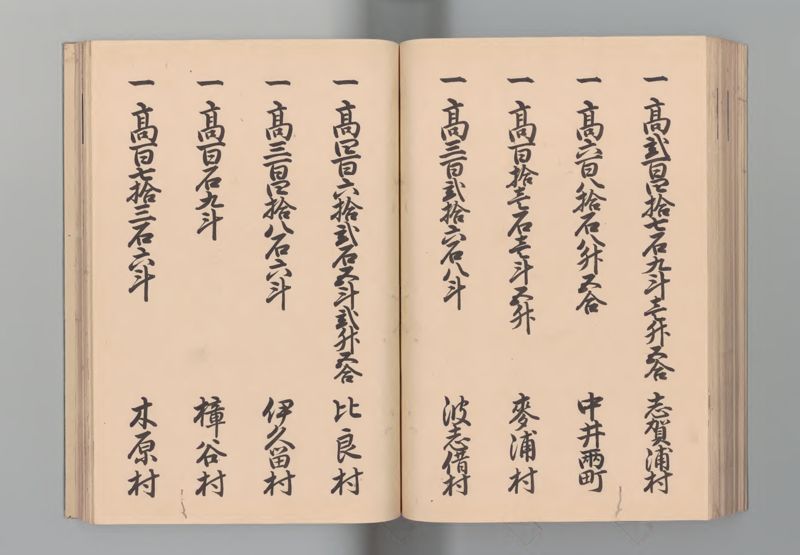 一高弐百四拾七石九斗壱升五合 志賀浦村
一高六百八拾石八升五合 中井両町
一高百拾壱石壱斗五升 麥浦村
一高三百弐拾六石八斗 波志借村
一高四百六拾弐石五斗弐升五合 比良村
一高三百四拾八石六斗 伊久留村
一高百石九斗 樟谷村
一高百七拾三石六斗 木原村